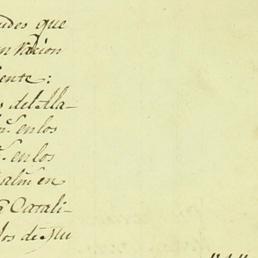 udes que
on racion
ente:
s del Ma-
en los
en los
salm en
a Catali-
los de su